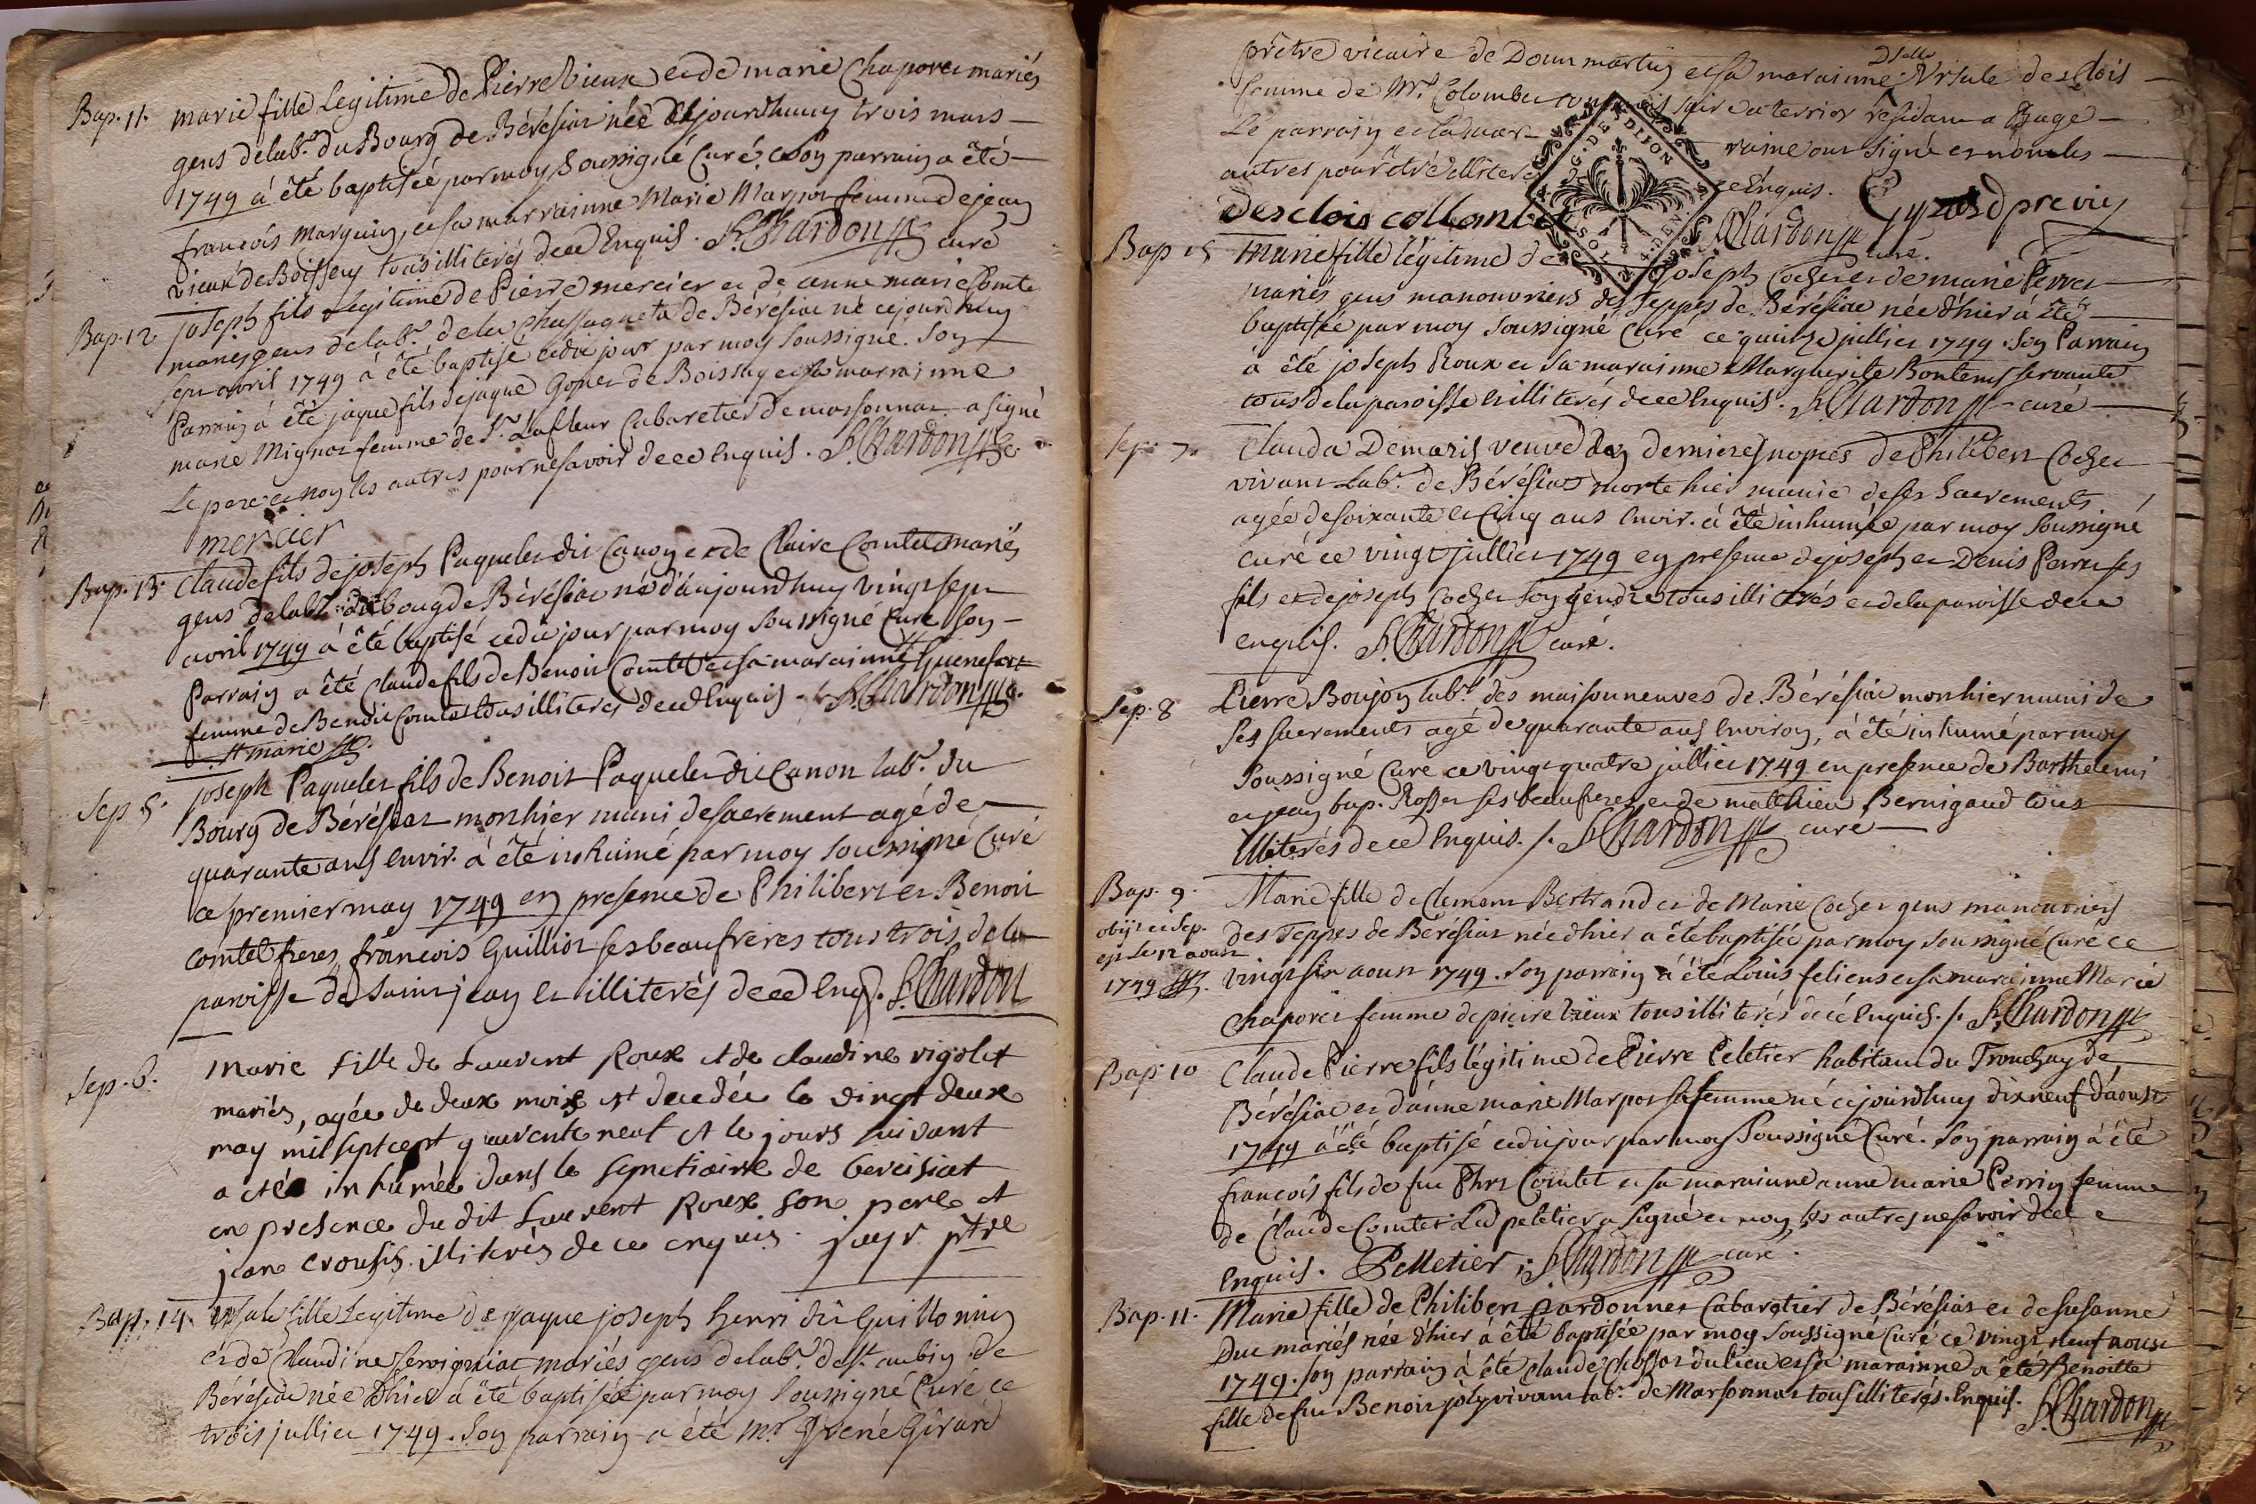 Bap. 11. marie fille Legitime de Pierre Vieux et de marie Chaporet mariés
gens de lab.r du Bourg de Bérésiat née cejourdhuy trois mars
1749 à été baptisée par moy soussigné Curé. son parrain a été
françois marguin, et sa marrainne Marie Marpot femme de jean
vieux de Boissey tous illiterés de ce Enquis. Chardon curé
Bap. 12 joseph fils Legitime de Pierre mercier et de anne marie Comte
mariés gens de lab.r de la Chassagne de Bérésiat né cejourdhuy
sept avril 1749 à été baptisé cedit jour par moy soussigné. son
Parrain à été jaque fils de jaque Goyet de Boissey et sa marrainne
marie Mignot femme de S.r Lafleur Cabaretier de marsonnat a signé
Le pere et non les autres pour ne savoir de ce Enquis. Chardon
mercier
Bap. 13. Claude fils de joseph Paquelet dit Canon et de Claire Comtet mariés
gens de lab.r du boug de Bérésiat né d'aujourdhuy vingt sept
avril 1749 à été baptisé cedit jour par moy soussigné Curé son
Parrain a été Claude fils de Benoit Comtet et sa marainne Guenefort
femme de Benoit Comtet tous illiterés de ce Enquis. Chardon
marie
Sep. 5. joseph Paquelet fils de Benoit Paquelet dit Canon lab.r du
Bourg de Bérésiat mort hier muni de sacrement agé de
quarante ans envir. à été inhumé par moy soussigné Curé
ce premier may 1749 en presence de Philibert et Benoit
Comtet freres, françois Guilliot ses beaufreres tous trois de la
paroisse de saint jean et illiterés de ce Enq. Chardon
Sep. 6. marie fille de Laurent Roux et de claudine rigolet
mariés, agée de deux mois est decedée le vingt deux
may mil sept cent quarente neuf et le jours suivant
a eté inhumée dans le semetiairre de bereisiat
en presence du dit Laurent Roux son pere et
jean crousis. illiterés de ce enquis. ptre
Bap. 14. ursule fille Legitime de jaque joseph henri dit Guillonin
et de Claudine mariés gens de lab.r de st. aubin de
Bérésiat née dhier à été baptisée par moy soussigné Curé ce
trois jullier 1749. son parrain a été Mr. René Girard
prêtre vicaire de Dommartin et sa marainne Dlelle Ursule desclois
femme de Mr. Colombet commissaire à terrier résidant a Bagé
Le parrain et la marraine ont signé et non les
autres pour être illiteré ce Enquis.
desclois collombet Chardon curé.
G. DE DIJON
SOLS 4 DEN
Bap 15 marie fille légitime de joseph Cochet et de marie Perret
mariés gens manouvriers des Teppes de Bérésiat née dhier à été
baptisée par moy soussigné Curé ce quinze jullier 1749. son Parrain
à été joseph Roux et sa marainne Marguerite Bontems servante
tous de la paroisse illiterés de ce Enquis. Chardon curé
Sep. 7. Clauda Demaris veuve en dernieres nopces de Philibert Cochet
vivant Lab.r de Bérésiat morte hier munie de ses sacrements
agée de soixante et Cinq ans Envir. à été inhumée par moy soussigné
Curé ce vingt jullier 1749 en presence de joseph et Denis Perra ses
fils et de joseph Cochet son gendre tous illiterés et de la paroisse de ce
enquis. Chardon curé.
Sep. 8 Pierre Boujon lab.r des maisonneuves de Bérésiat mort hier muni de
ses sacrements agé de quarante ans environ, à été inhumé par moy
soussigné Curé ce vingt quatre jullier 1749 en presence de Barthelemi
et jean bap. Rosset ses beaufreres et de mathieu Bernigaud tous
illiterés de ce Enquis. Chardon curé
Bap. 9. Marie fille de Clement Bertrand et de Marie Cochet gens manouvriers
obijt et sep. des Teppes de Bérésiat née dhier a été baptisée par moy soussigné Curé ce
est Le 12 aoust
1749 vingt six aoust 1749. son parrain à été Louis feliens et sa marainne Marie
Chaporet femme de pierre vieux tous illiterés de ce Enquis. Chardon
Bap. 10 Claude Pierre fils légitime de Pierre Peletier habitant du Tronchay de
Bérésiat et d'anne marie Marpot sa femme né cejourdhuy dixneuf d'aoust
1749 à été baptisé cedit jour par moy soussigné Curé. son parrain à été
françois fils de fu Phrt Comtet et sa marainne anne marie Perrin femme
de Claude Comtet Led peletier a signé et non les autres ne savoir de ce
Enquis. Pelletier, Chardon curé.
Bap. 11. Marie fille de Philibert Cardonnet Cabaretier de Bérésiat et de susanne
Duc mariés née dhier à été baptisée par moy soussigné Curé ce vingt neuf aoust
1749. son parrain à été claude Chossat du lieu et sa marainne a été Benoitte
fille de fu Benoit joly vivant lab.r de Marsonnat tous illiterés. Enquis. Chardon